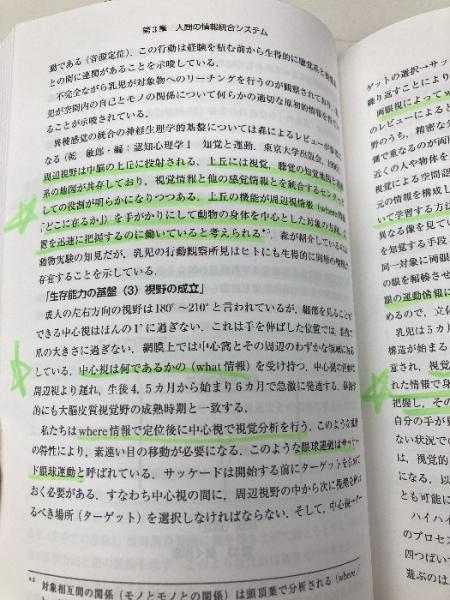 第3章 人間の情報統合システム
動である（音源定位）．この行動は経験を積む前から生得的に聴覚系と
との間に連関があることを示唆している．
不完全ながら乳児が対象物へのリーチングを行うのが観察されており，
児が空間内の自己とモノの関係について何らかの適切な原初的情報を
ることが示唆されている．
異種感覚の統合の神経生理学的基盤については森によるレビューが参考に
なる（乾 敏郎・編：認知心理学1 知覚と運動．東京大学出版会，
周辺視野は中脳の上丘に投射される．上丘には視覚，聴覚の知覚地図と
系の地図が共存しており，視覚情報と他の感覚情報とを統合するセンター
しての役割が明らかになりつつある．上丘の機能が周辺視情報（where
「どこに在るか」）を手がかりにして動物の身体を中心とした対象の方向，
置を迅速に把握するのに働いていると考えられる*²．森が紹介しているのは
動物実験の知見だが，乳児の行動観察所見はヒトにも生得的に同様の
存在することを示している．
「生存能力の基盤（3）視野の成立」
成人の左右方向の視野は180°～210°と言われているが，細部を見ることが
できる中心視はほんの1°に過ぎない．これは手を伸ばした位置では，
爪の大きさに過ぎない．網膜上では中心窩とその周辺のわずかな領域に
している．中心視は何であるかの（what情報）を受け持つ．中心視の
周辺視より遅れ，生後4，5カ月から始まり6カ月で急激に発達する．
的にも大脳皮質視覚野の成熟時期と一致する．
私たちはwhere情報で定位後に中心視で視覚分析を行う．このような
の特性により，素速い目の移動が必要になる．このような眼球運動はサッケー
ド眼球運動と呼ばれている．サッケードは開始する前にターゲットを
おく必要がある．すなわち中心視の間に，周辺視野の中から次に視覚分析
るべき場所（ターゲット）を選択しなければならない．そして，中心視→
*² 対象相互間の関係（モノとモノとの関係）は頭頂葉で分析される（where
ゲットの選択→サッ
繰り返すことにより
両眼視によって
のレビューによると
野のうち，精密な
側で重なるのが両眼
近くの人や物体を
視覚による空間認
元の情報を構成し
いて学習する方法
異なる像を見てい
を知覚する手段
同一対象に両眼
の眼を輻輳させ
眼の運動情報に
めるので，立体
乳児は5カ月
構造が始まる
意され，視覚が
れた情報で身
把握し，その
自分の手が
ない状況での
は，視覚的
になる．以
とも可能に
ハイハイ
のプロセス
四つばいで
遊ぶのは